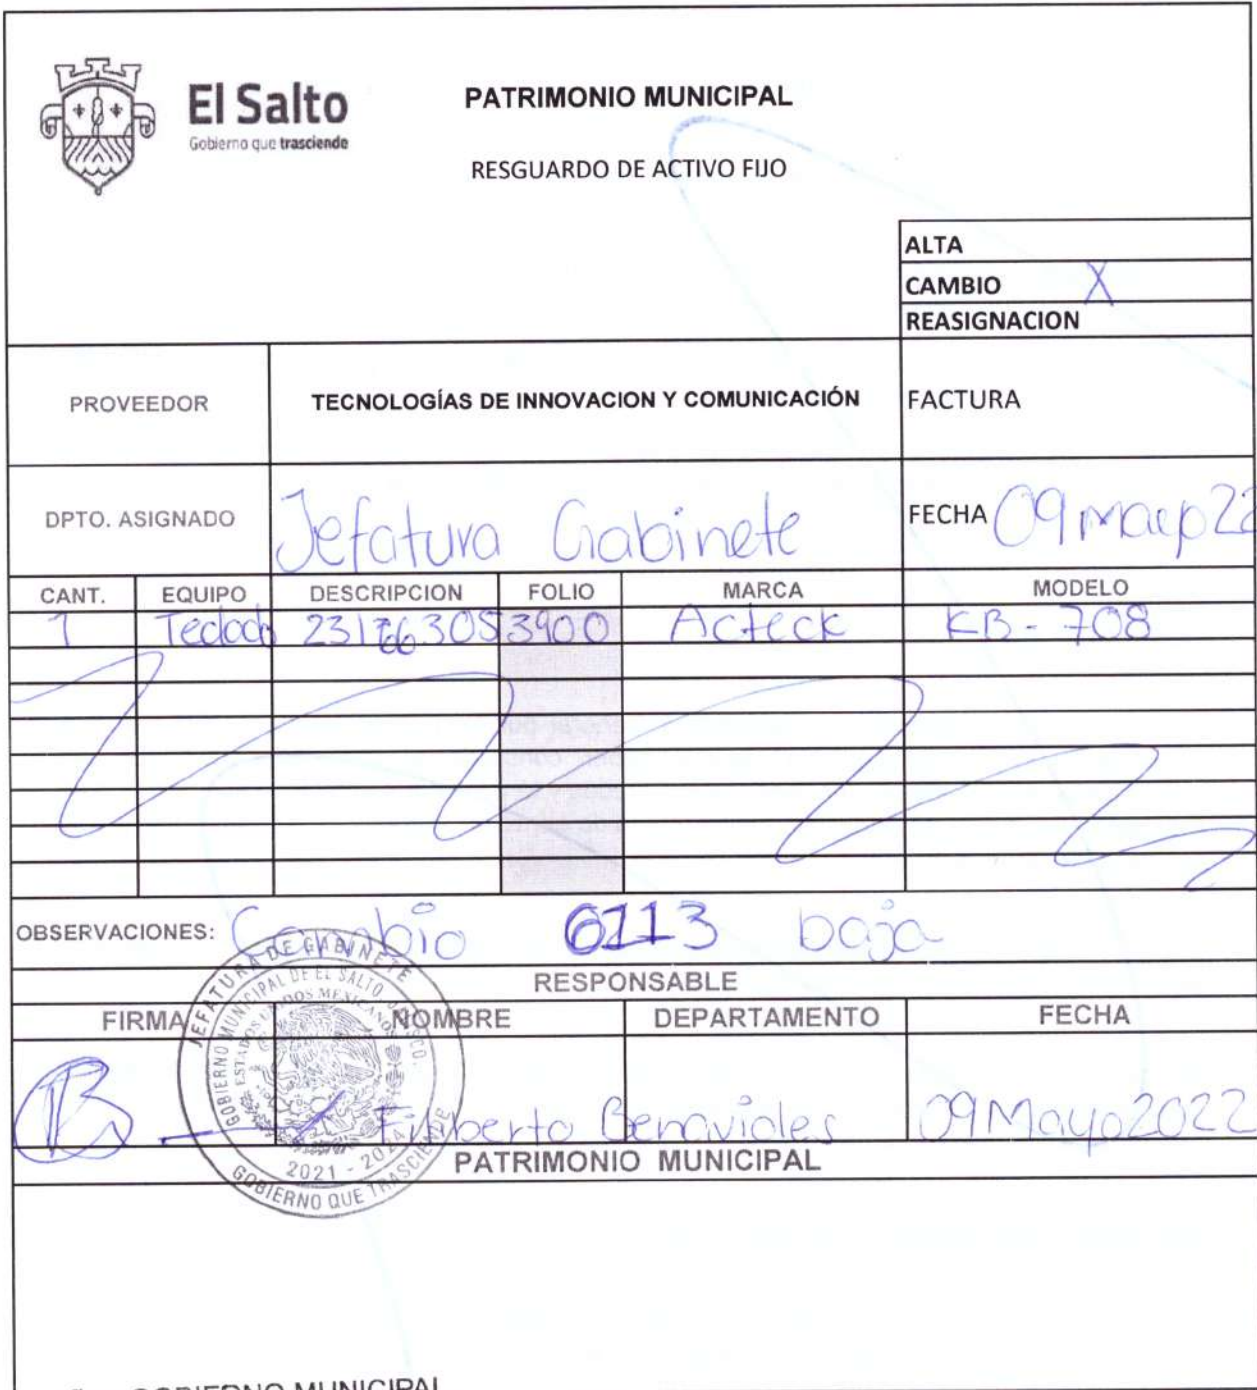 El Salto
Gobierno que trasciende
PATRIMONIO MUNICIPAL
RESGUARDO DE ACTIVO FIJO
ALTA
CAMBIO X
REASIGNACION
PROVEEDOR TECNOLOGÍAS DE INNOVACION Y COMUNICACIÓN FACTURA
DPTO. ASIGNADO Jefatura Gabinete FECHA 09 mayo 22
CANT. EQUIPO DESCRIPCION FOLIO MARCA MODELO
1 Teclado 3900 Acteck KB-708
OBSERVACIONES: Cambio 6113 baja
RESPONSABLE
FIRMA NOMBRE DEPARTAMENTO FECHA
Filiberto Benavides 09 Mayo 2022
JEFATURA DE GABINETE
GOBIERNO MUNICIPAL DE EL SALTO, JALISCO.
ESTADOS UNIDOS MEXICANOS
2021 - 2024
GOBIERNO QUE TRASCIENDE
PATRIMONIO MUNICIPAL
GOBIERNO MUNICIPAL